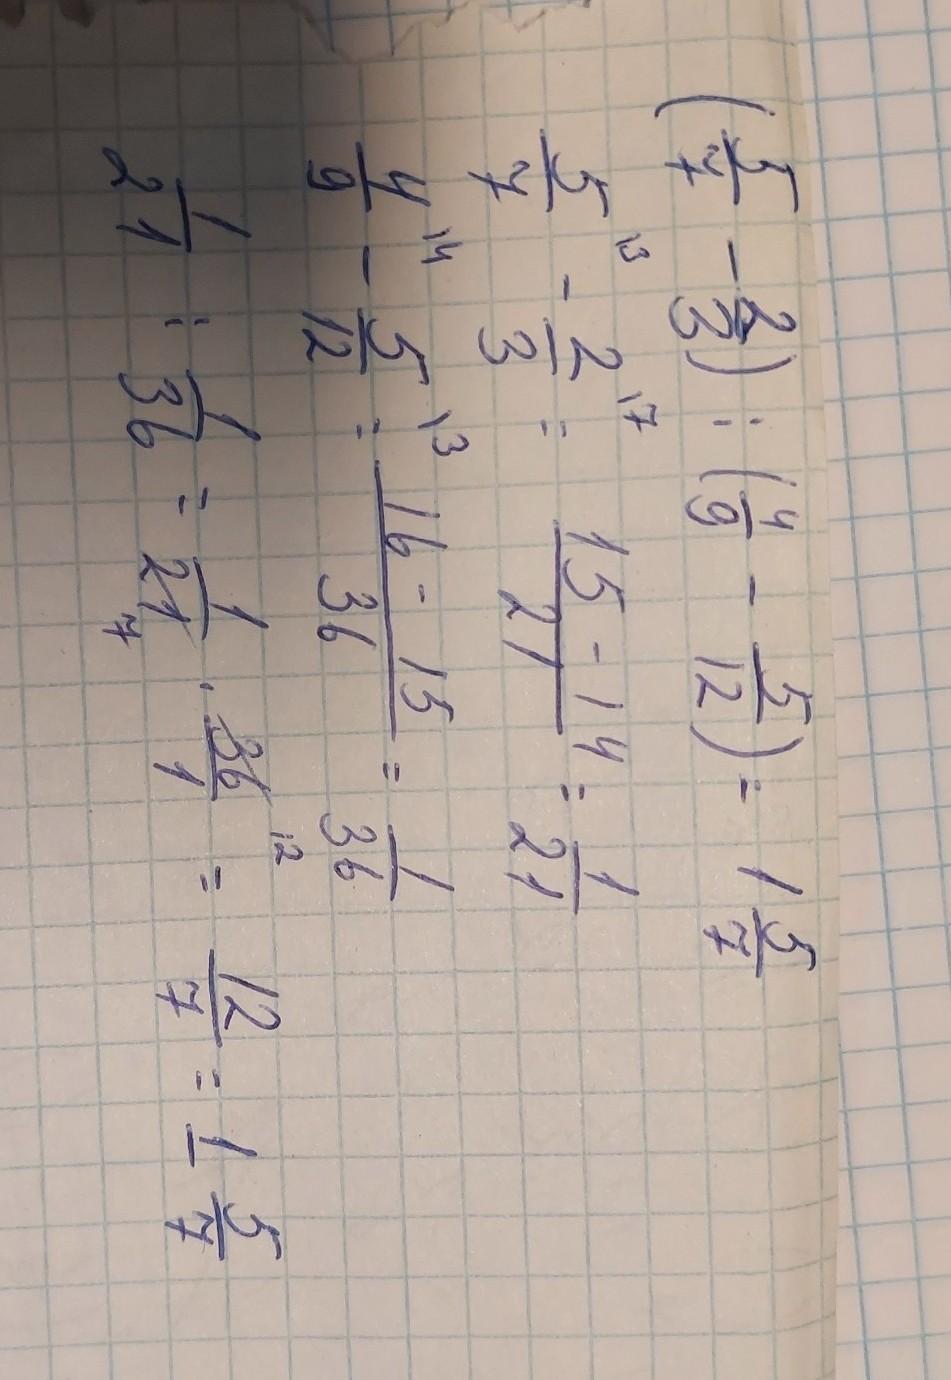 (5/7 - 2/3) : (4/9 - 5/12) = 1 5/7
5/7 \3 - 2/3 \7 = 15-14/21 = 1/21
4/9 \4 - 5/12 \3 = 16-15/36 = 1/36
1/21 : 1/36 = 1/21 7 · 36/1 12 = 12/7 = 1 5/7